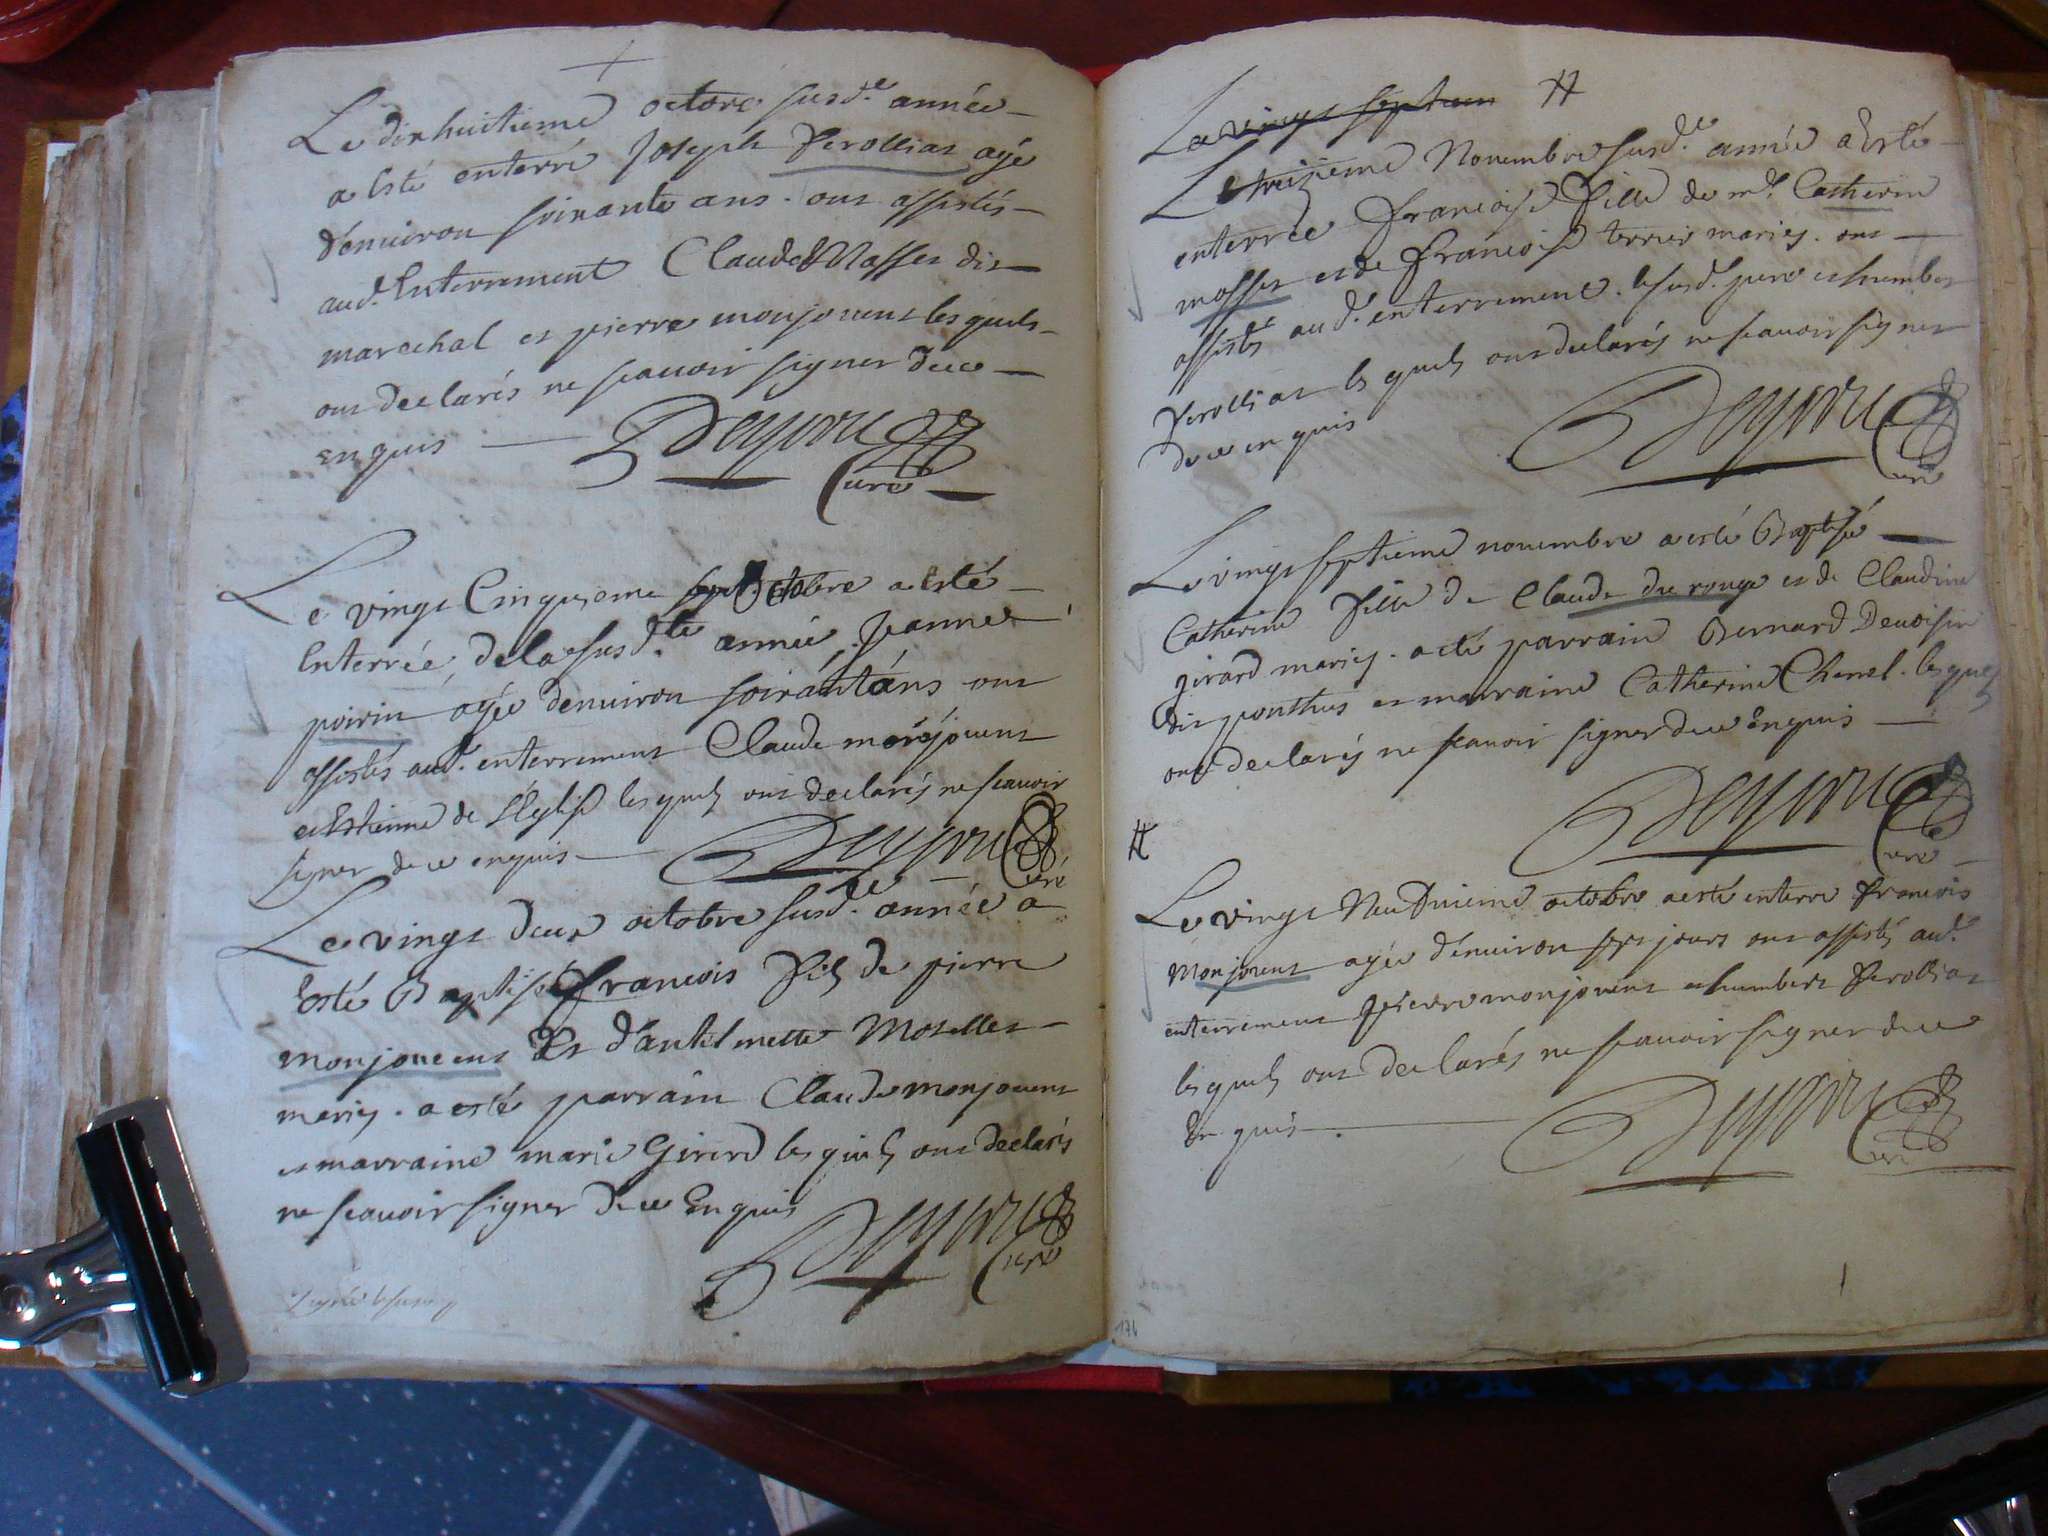 Le dixhuitieme octore susd.e année
a esté enterré Joseph Verollias agé
d'enuiron soixante ans. ont assistés
aud. Enterrement Claude Masses dit
marechal et pierre monjouent les quels
ont declarés ne scauoir signer dece
Enquis Deyvri
Curé
Le vingt Cinquieme Octobre a Esté
Enterrée dela susd.te année Jeanne
poirin agée denuiron soixantáns ont
assistés aud. enterrement Claude monjouent
et Estienne de L'Eglise les quels ont declarés ne scauoir
signer de ce enquis Deyvri
Curé
Le vingt deux octobre susd.e année a
Esté Baptisé francois fils de pierre
monjouent Et d'antelmette Moselles
mariés. a esté parrain Claude monjouent
et marraine marie Girard les quels ont declarés
ne scauoir signer de ce Enquis
Deyvri
Curé
Le vingt septiem #
Le treizieme Nouembre susd.e année a Esté
enterrée francoise fille de m.e Catherin
masses et de francoise terrier mariés. ont
assistés aud. enterrement. le susd. pere et humbert
Verollias les quels ont declarés ne scauoir signer
de ce enquis Deyvri
Curé
Le vingt septieme nouembre a esté Baptisée
Catherine fille de Claude du rouge et de Claudine
girard mariés. a esté parrain Bernard Deuoisin
dit ponthus et marraine Catherine Chenel. les quels
ont declarés ne scauoir signer de ce Enquis
Deyvri
Curé
#
Le vingt Neufuieme octobre a esté enterré francois
Monjouent agée d'enuiron sept jours ont assistés aud.
enterrement pierre monjouent et humbert Verollias
les quels ont declarés ne scauoir signer de ce
En quis. Deyvri
Curé
174